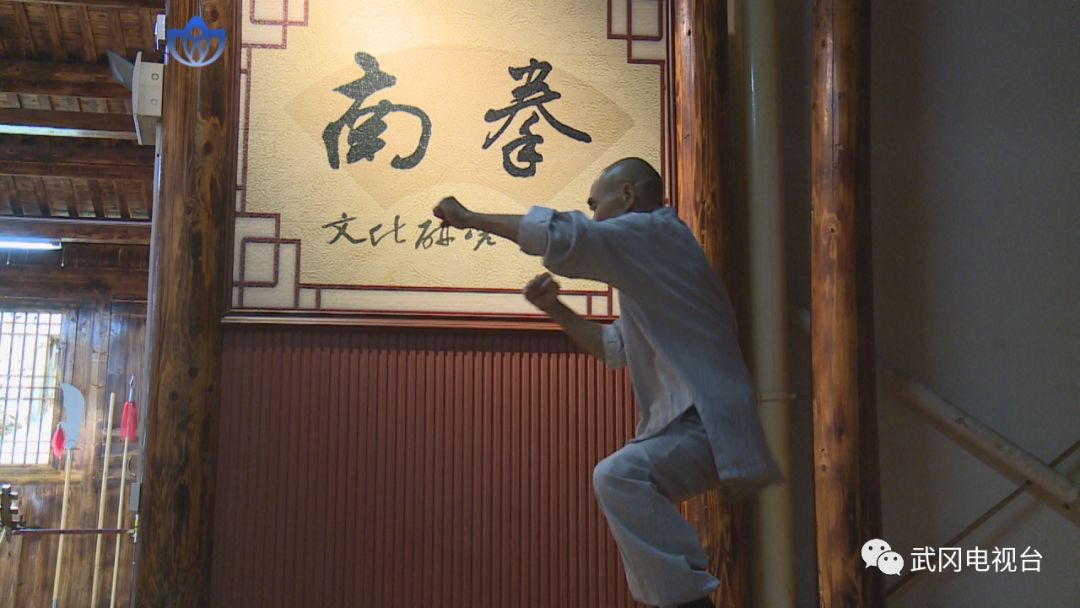 南拳
文化研究
武冈电视台